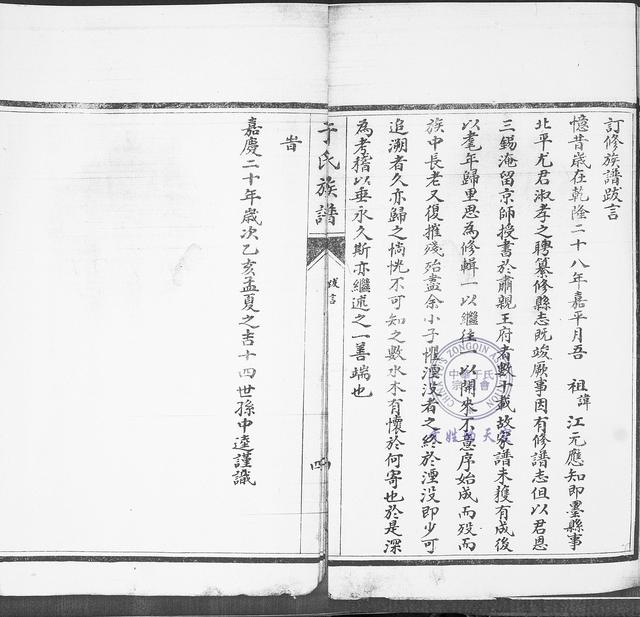 訂修族譜跋言
憶昔歲在乾隆二十八年嘉平月吾 祖諱 江元應知即墨縣事
北平尤君淑孝之聘纂修縣志既竣厥事因有修譜志但以君恩
三錫淹留京師授書於肅親王府者數十載故家譜未獲有成後
以耄年歸里思為修輯一以繼往一以開來不意序始成而歿而
族中長老又復摧殘殆盡余小子懼湮沒者之終於湮沒即少可
追溯者久亦歸之惝恍不可知之數水木有懷於何寄也於是深
為考稽以垂永久斯亦繼述之一善端也
于氏族譜
跋言
四
旹
嘉慶二十年歲次乙亥孟夏之吉十四世孫中逵謹識
ZONGQIN
中華于氏
宗親會